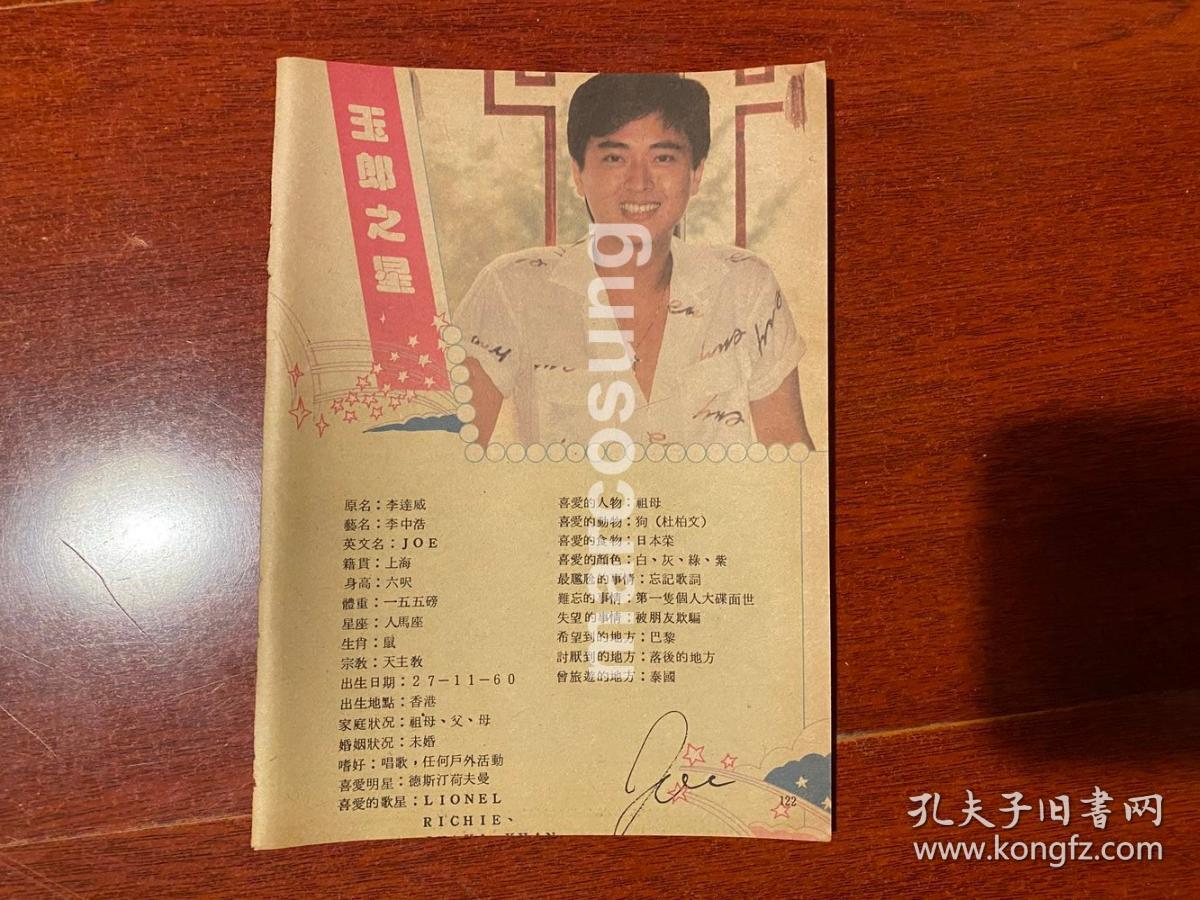 玉郎之星
原名：李達威
藝名：李中浩
英文名：JOE
籍貫：上海
身高：六呎
體重：一五五磅
星座：人馬座
生肖：鼠
宗教：天主教
出生日期：27-11-60
出生地點：香港
家庭狀況：祖母、父、母
婚姻狀況：未婚
嗜好：唱歌，任何戶外活動
喜愛明星：德斯汀荷夫曼
喜愛的歌星：LIONEL
RICHIE、
喜愛的人物：祖母
喜愛的動物：狗（杜柏文）
喜愛的食物：日本菜
喜愛的顏色：白、灰、綠、紫
最尷尬的事情：忘記歌詞
難忘的事情：第一隻個人大碟面世
失望的事情：被朋友欺騙
希望到的地方：巴黎
討厭到的地方：落後的地方
曾旅遊的地方：泰國
Joe
122
marcosung
孔夫子旧书网
www.kongfz.com